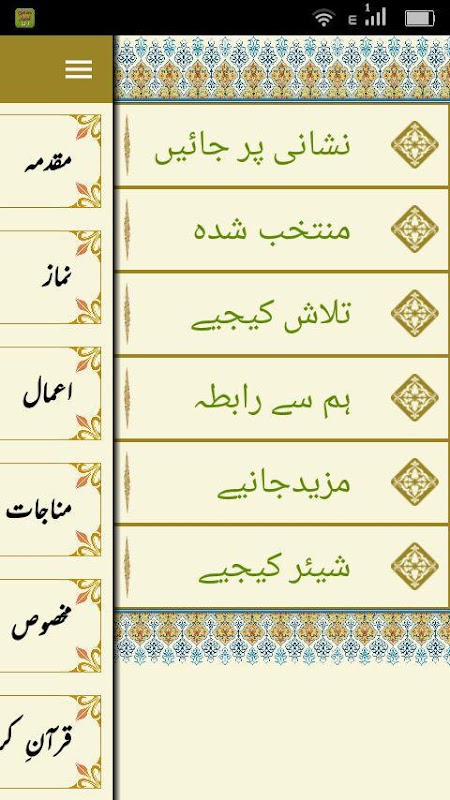 نشانی پر جائیں
منتخب شدہ
تلاش کیجیے
ہم سے رابطہ
مزیدجانیے
شیئر کیجیے
مقدمہ
نماز
اعمال
مناجات
مخصوص
قرآنِ کر